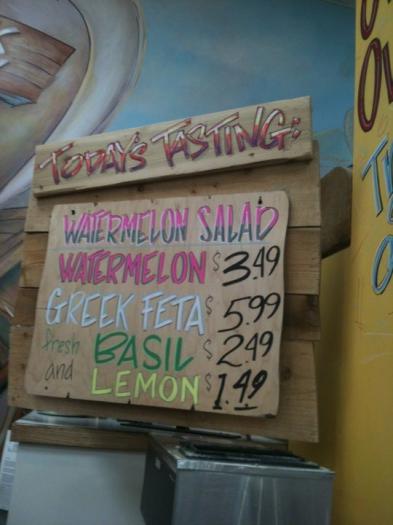 TODAY'S TASTING:
WATERMELON SALAD
WATERMELON $3.49
GREEK FETA $5.99
fresh BASIL $2.49
and LEMON $1.49